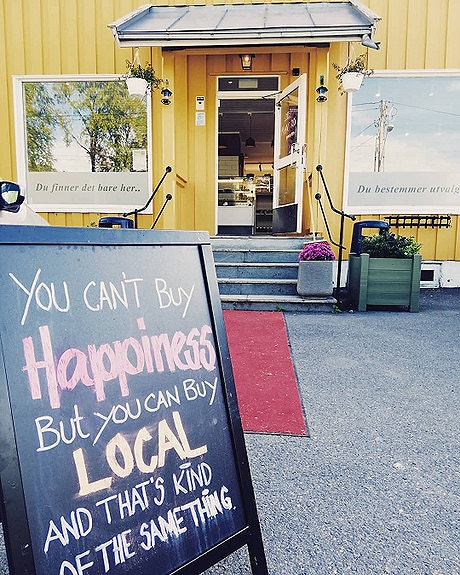 Du finner det bare her..
Du bestemmer utvalg
YOU CAN'T BUY
Happiness
BUT YOU CAN BUY
LOCAL
AND THAT'S KIND
OF THE SAMETHING.